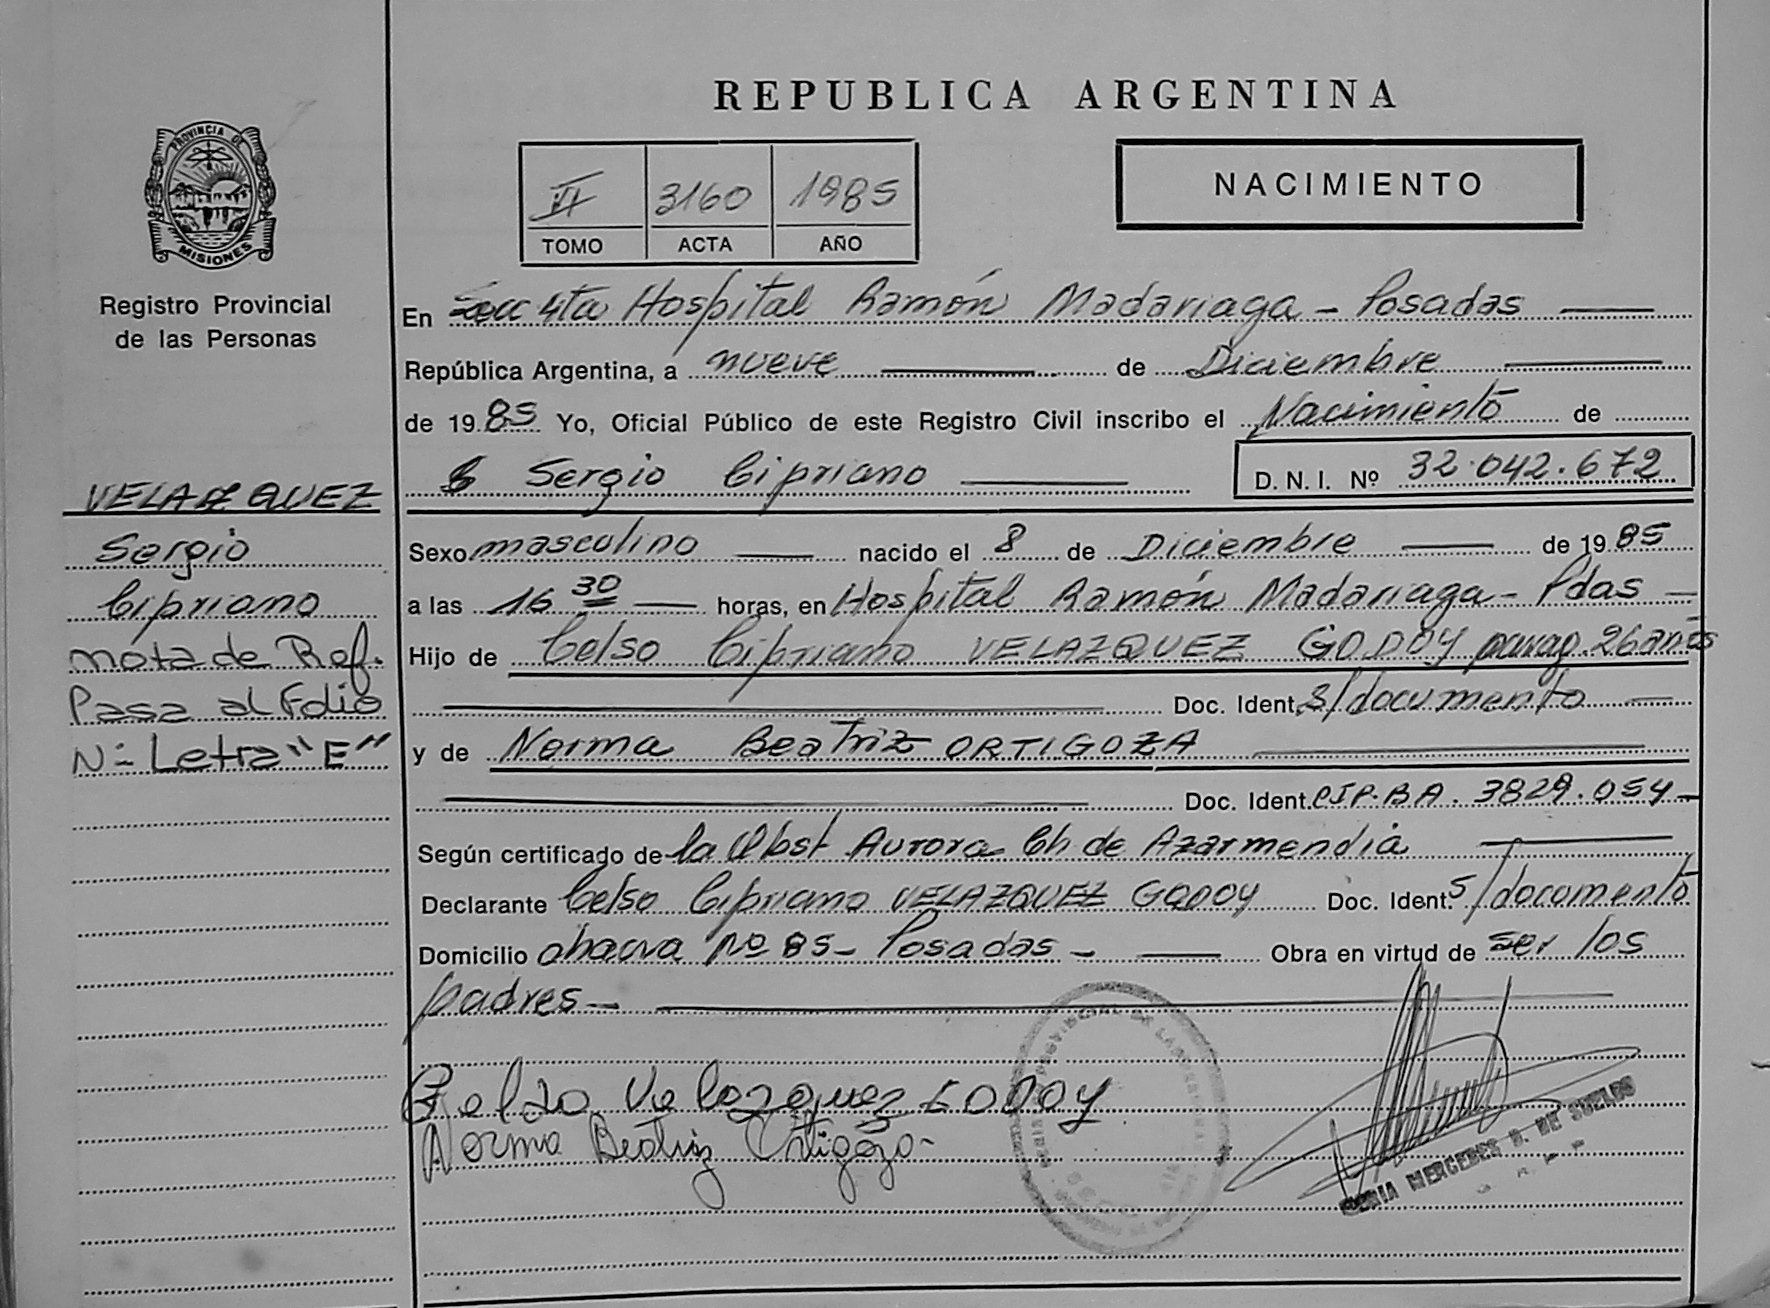 REPUBLICA ARGENTINA
PROVINCIA DE
MISIONES
Registro Provincial
de las Personas
VI 3160 1985
TOMO ACTA AÑO
NACIMIENTO
En Secc 4ta Hospital Ramón Madariaga - Posadas
República Argentina, a nueve de Diciembre
de 1985 Yo, Oficial Público de este Registro Civil inscribo el Nacimiento de
Sergio Cipriano D.N.I. Nº 32.042.672
Sexo masculino nacido el 8 de Diciembre de 1985
a las 16 30 horas, en Hospital Ramón Madariaga - Pdas -
Hijo de Celso Cipriano VELAZQUEZ GODOY parag. 26 años
Doc. Ident. S/documento
y de Norma Beatriz ORTIGOZA
Doc. Ident. CIP.BA. 3829.054-
Según certificado de la Obst Aurora Ch de Azarmendia
Declarante Celso Cipriano VELAZQUEZ GODOY Doc. Ident. S/documento
Domicilio chacra Nº 85 - Posadas - Obra en virtud de ser los
padres -
Velazquez GODOY
Norma Beatriz Ortigoza -
MERCEDES D. DE SUELDO
VELAZQUEZ
Sergio
Cipriano
nota de Ref.
Pasa al Folio
Nº Letra "E"